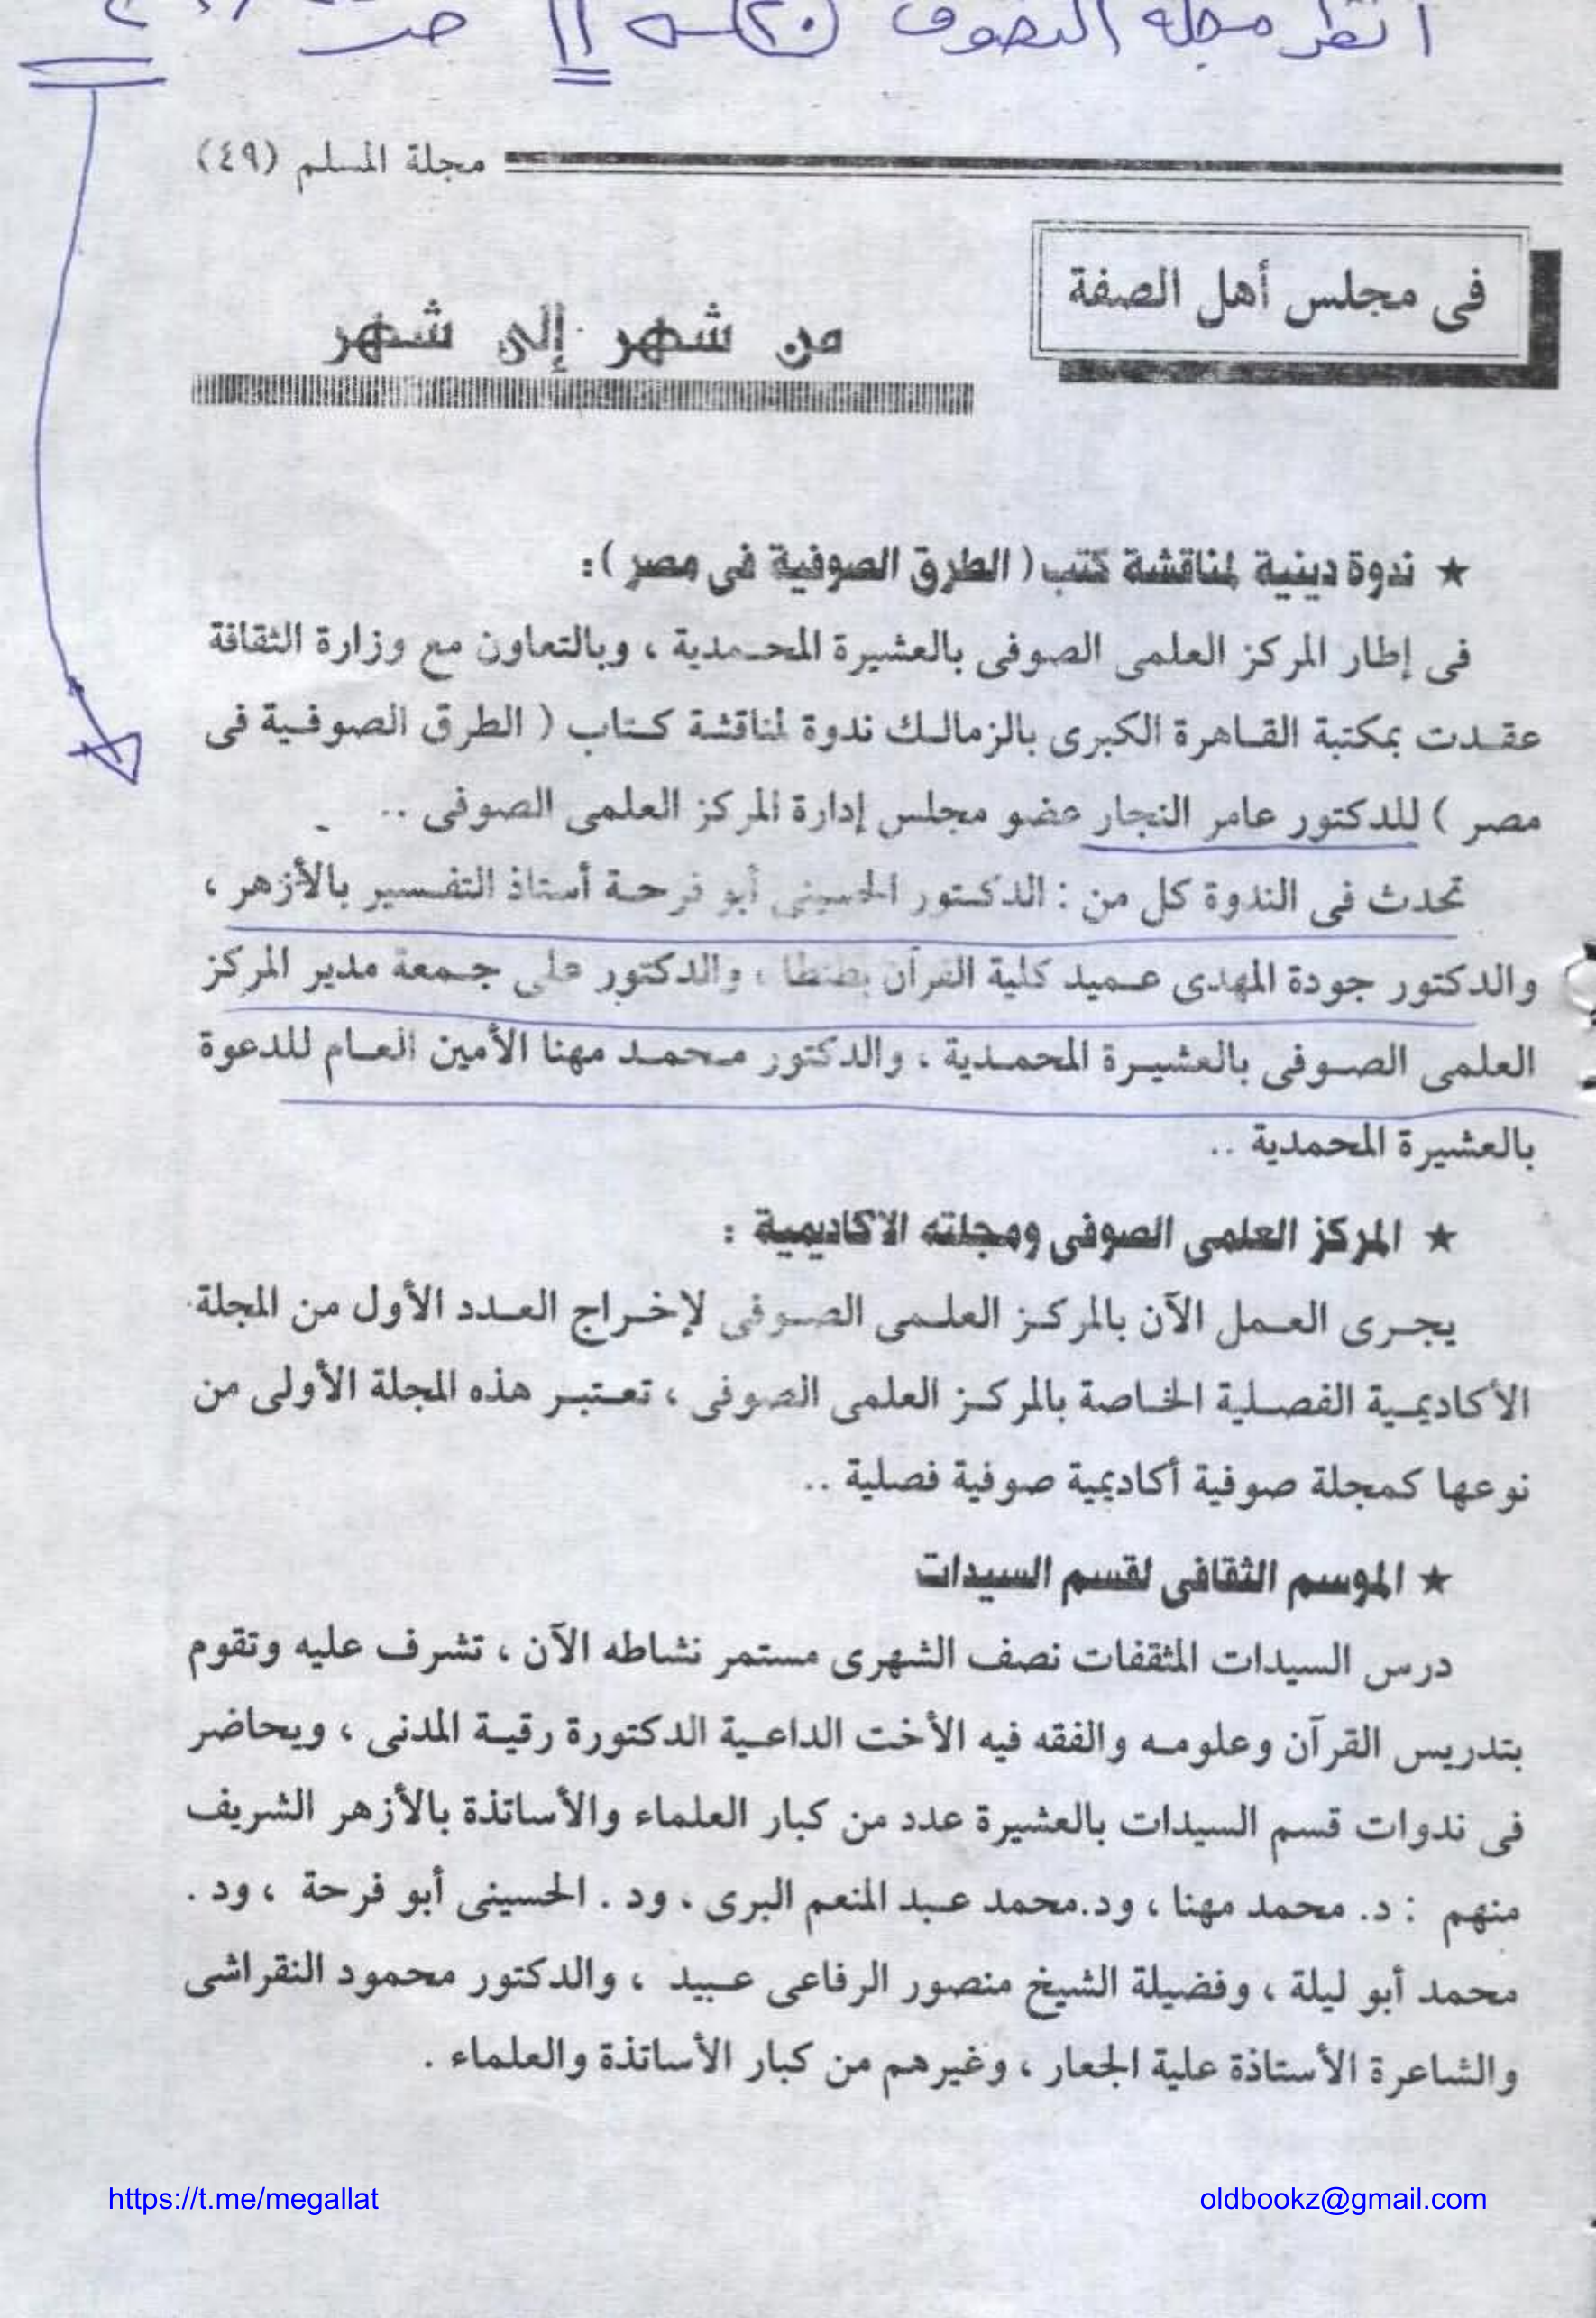 انظر مجلة التصوف
مجلة المسلم (٤٩)
فى مجلس أهل الصفة
من شهر إلى شهر
★ ندوة دينية لمناقشة كتب ( الطرق الصوفية فى مصر ) :
فى إطار المركز العلمى الصوفى بالعشيرة المحمدية ، وبالتعاون مع وزارة الثقافة
عقدت بمكتبة القاهرة الكبرى بالزمالك ندوة لمناقشة كتاب ( الطرق الصوفية فى
مصر ) للدكتور عامر النجار عضو مجلس إدارة المركز العلمى الصوفى ..
تحدث فى الندوة كل من : الدكتور الحسينى أبو فرحة أستاذ التفسير بالأزهر ،
والدكتور جودة المهدى عميد كلية القرآن بطنطا ، والدكتور على جمعة مدير المركز
العلمى الصوفى بالعشيرة المحمدية ، والدكتور محمد مهنا الأمين العام للدعوة
بالعشيرة المحمدية ..
★ المركز العلمى الصوفى ومجلته الأكاديمية :
يجرى العمل الآن بالمركز العلمى الصوفى لإخراج العدد الأول من المجلة
الأكاديمية الفصلية الخاصة بالمركز العلمى الصوفى ، تعتبر هذه المجلة الأولى من
نوعها كمجلة صوفية أكاديمية صوفية فصلية ..
★ الموسم الثقافى لقسم السيدات
درس السيدات المثقفات نصف الشهرى مستمر نشاطه الآن ، تشرف عليه وتقوم
بتدريس القرآن وعلومه والفقه فيه الأخت الداعية الدكتورة رقية المدنى ، ويحاضر
فى ندوات قسم السيدات بالعشيرة عدد من كبار العلماء والأساتذة بالأزهر الشريف
منهم : د. محمد مهنا ، ود.محمد عبد المنعم البرى ، ود . الحسينى أبو فرحة ، ود .
محمد أبو ليلة ، وفضيلة الشيخ منصور الرفاعى عبيد ، والدكتور محمود النقراشى
والشاعرة الأستاذة علية الجعار ، وغيرهم من كبار الأساتذة والعلماء .
https://t.me/megallat
oldbookz@gmail.com